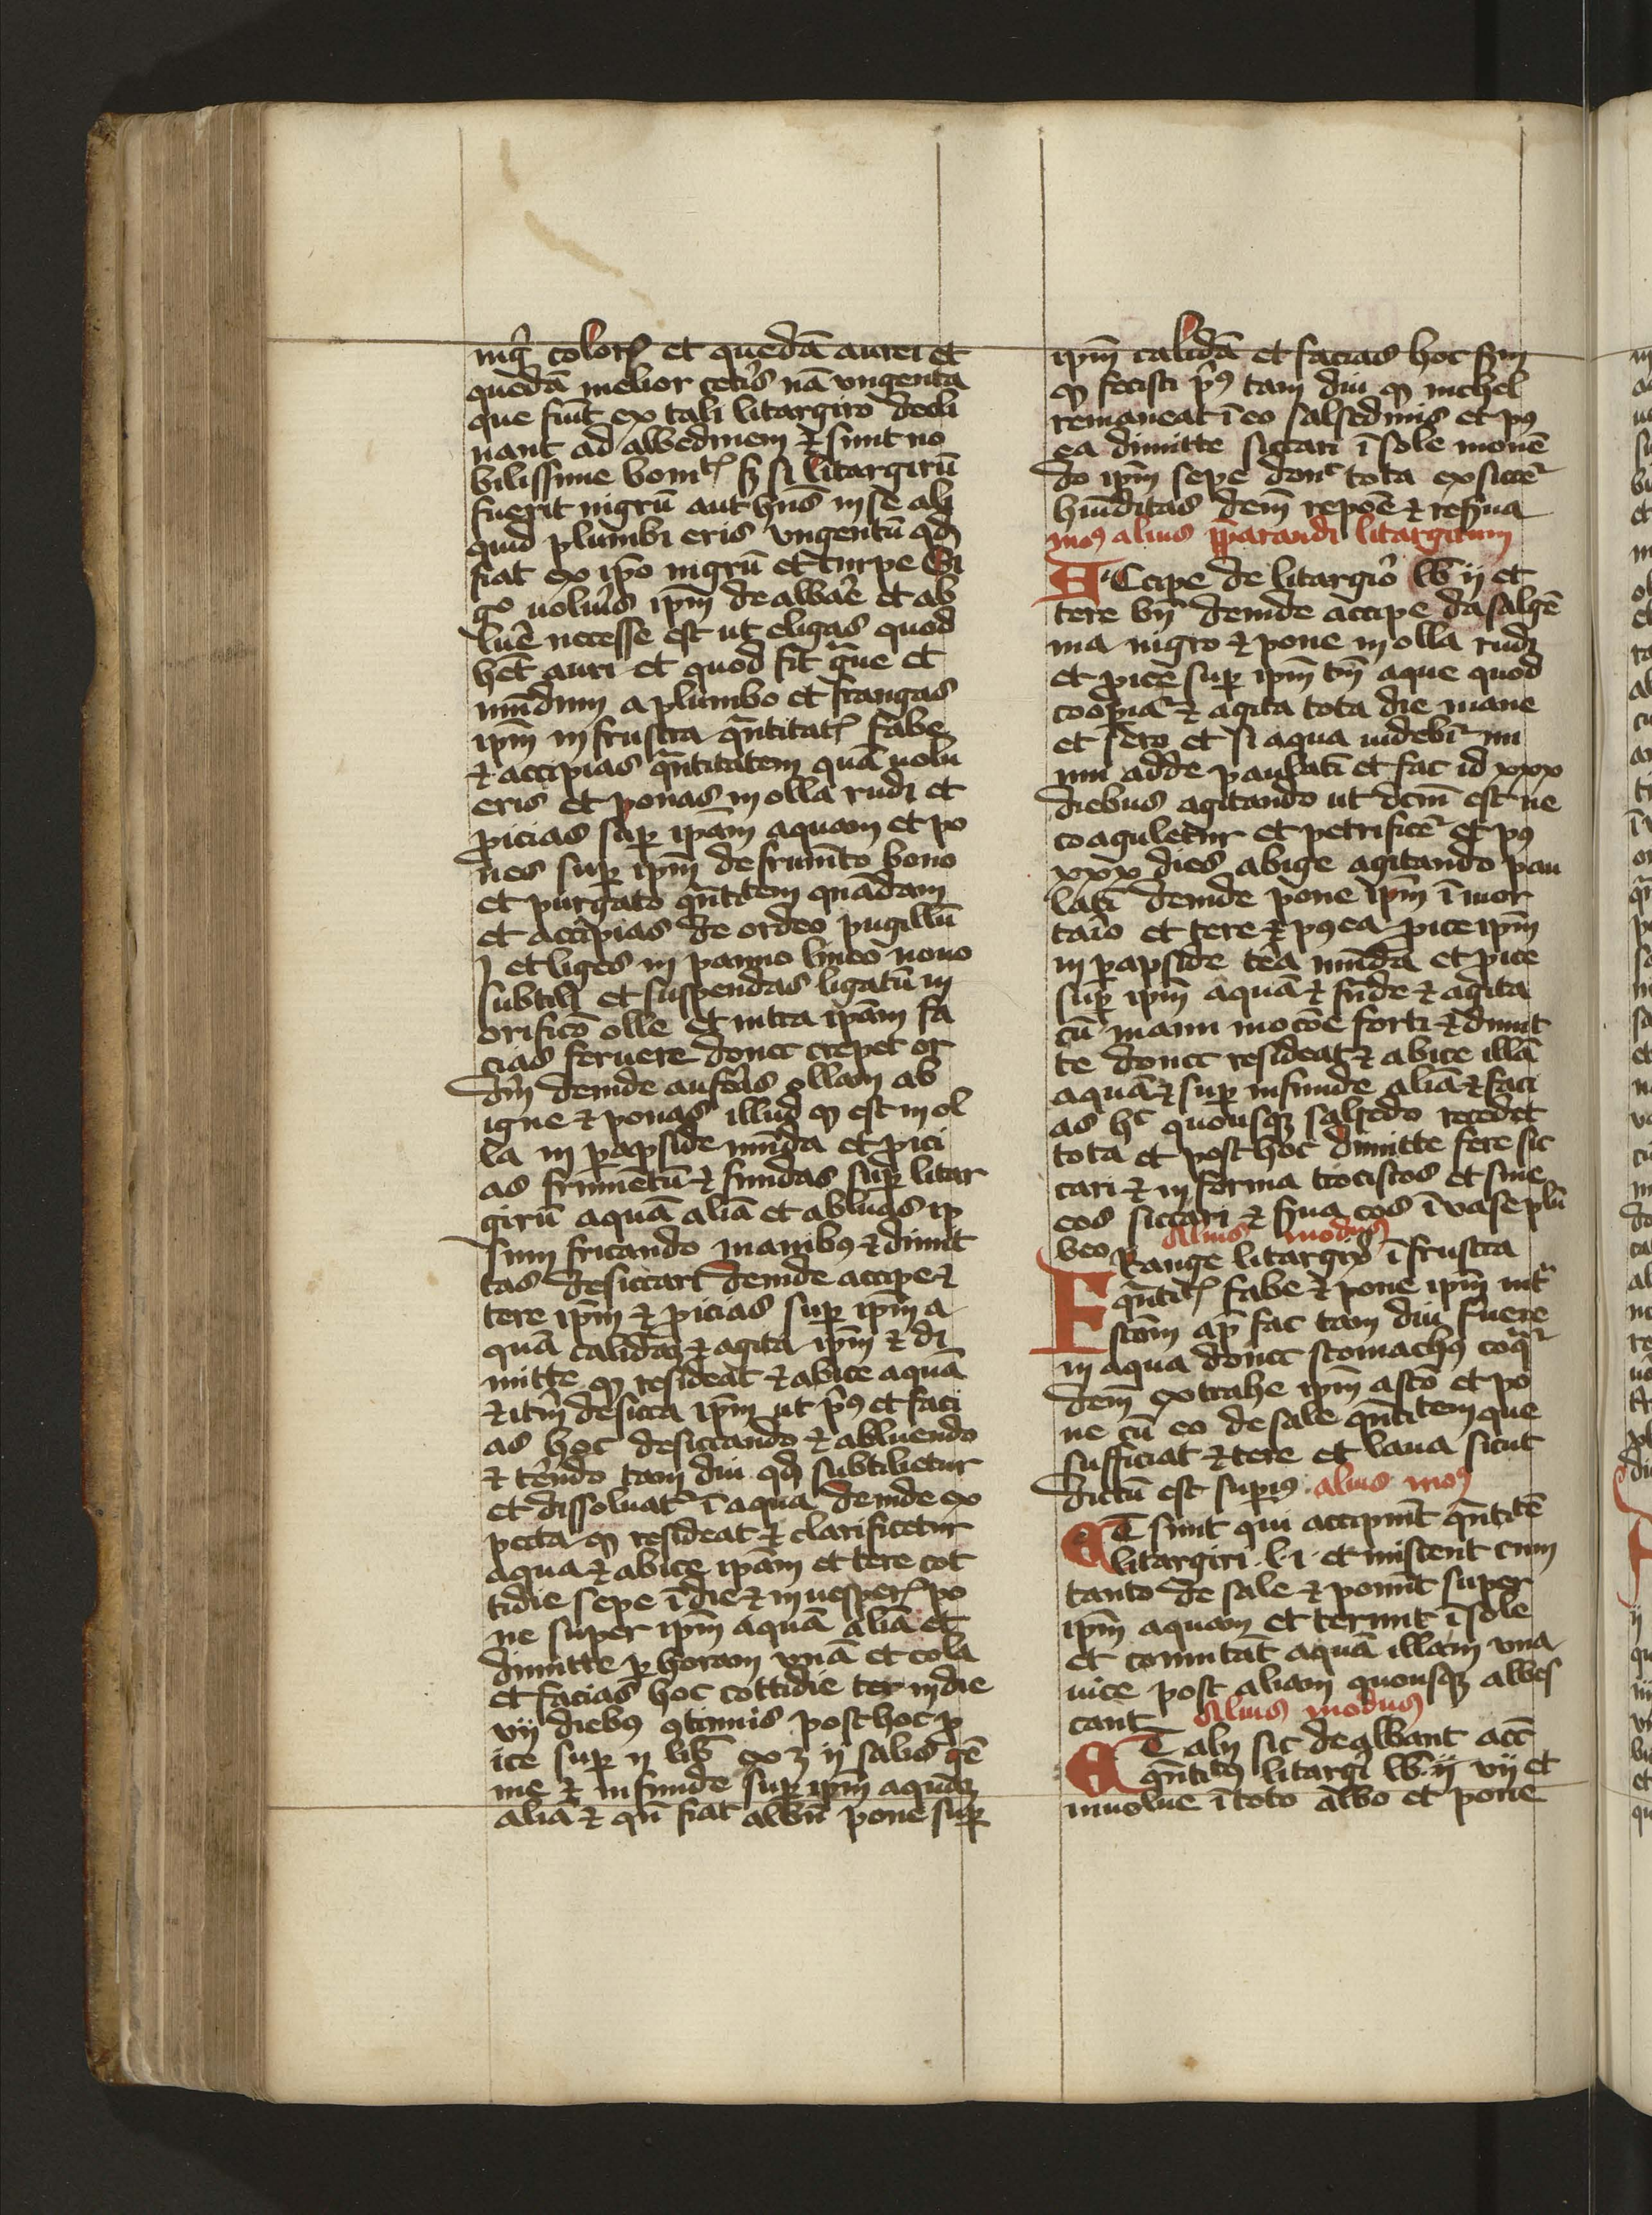 nigri coloris et quedā aurei et
quedā melior ceteris nā vngenta
que fiūt ex tali litargiro decli
nant ad albedinem et sunt no
bilissime bonitatis sꝫ si litargirū
fuerit nigrū aut hn̄s in se ali
quid plumbi eris vngentū qd̄
fiat ex ip̄o nigrū et turpe Si
gͦ uolueris ip̄m dealbare et ab
luere necesse est ut eligas quod
hēt auri et quod sit graue et
mūdum a plumbo et frangas
ip̄m in frustra quātitatis fabe
et accipias quātitatem quā uolu
eris et ponas in olla rudi et
ꝓicias suꝑ ipam aquam et po
nes suꝑ ip̄m de frumēto bono
et purgato quātitatem quādam
et accipias de ordeo pugillū
j et liges in panno lineo nouo
subtili et suspendas ligatū in
orificio olle et intra ipam fa
cias feruere donec crepet or
deū deinde auferas ollam ab
igne et ponas illud qd̄ est in ol
la in ꝑapside mūda et ꝓici
as frumētū et fundas suꝑ litar
girū aquā aliā et abluas ip
sum fricando manibꝰ et dimit
tas desiccari deinde accipe et
tere ip̄m et ꝓicias suꝑ ip̄m a
quā calidā et agita ip̄m et di
mitte qd̄ resideat et abice aquā
et iterū desicca ip̄m ut priꝰ et faci
as hoc desiccando et abluendo
et terendo tam diu qd̄ subtilietur
et dissoluatur ī aqua deinde ex
pecta qd̄ resideat et clarificetur
aqua et abice ipam et tere cot
tidie sepe ī die et in uesperis po
ne super ip̄m aquā aliā et
dimitte ꝑ horam vnā et cola
et facias hoc cottidie ter in die
vij diebꝰ ꝯtinuis post hoc ꝓ
ice suꝑ ij lib̄ ex ʒ ij salis gē
me et infunde suꝑ ip̄m aquā
aliā et qn̄ fiat albū pone suꝑ
ip̄m calidā et facias hoc sicut
qd̄ fecisti priꝰ tam diu qd̄ nichel
remaneat ī eo salsedinis et pꝰ
ea dimitte siccari ī sole mouē
do ip̄m sepe donec tota exsiccetur
humiditas dem̄ repone et reserua
modꝰ alius p̄parandi litargirum
ACcipe de litargiro lb ij et
tere bn̄ deinde accipe da salgē
ma nigro et pone in olla rudi
et ꝓice suꝑ ip̄m tm̄ aque quod
cooꝑiat et agita tota die mane
et sero et si aqua uidebit mi
nui adde paulatī et fac id xxx
diebus agitando ut dcm̄ est ne
coaguletur et petrificetur et pꝰ
xxx dies abige agitando pau
latī deinde pone ip̄m ī mor
tario et tere et pꝰea ꝓice ip̄m
in ꝑapside terrea mūda et ꝓice
suꝑ ip̄m aquā et funde et agita
cū manu mocōe forti et dimit
te donec resideat et abice illā
aquā et suꝑ infunde aliā et faci
as hͨ quousqꝫ salsedo recedet
tota et post hoc dimitte fere sic
cari et in forma trociscos et sine
eos siccari et serua eos ī vase plū
beo Alius modus
FRange litargirū ī frustra
quātitatis fabe et pone ip̄m intra
stom̄ ap̄ fac tam diu feruere
in aqua donec stomachꝰ coquatur
dem̄ extrahe ip̄m a sto et po
ne cū eo de sale quātitatem que
sufficiat et tere et laua sicut
dictū est superiꝰ alius modꝰ
ET sunt qui accipiūt quātitatē
litargiri l i et miscent cum
tanto de sale et ponūt super
ip̄m aquam et terunt ī sole
et comutāt aquā illam vna
uice post aliam quousqꝫ albes
cant Alius modus
ET alij sic dealbant acc̄
quātitatē litargiri lb ij vij et
inuolue ī toto albo et pone